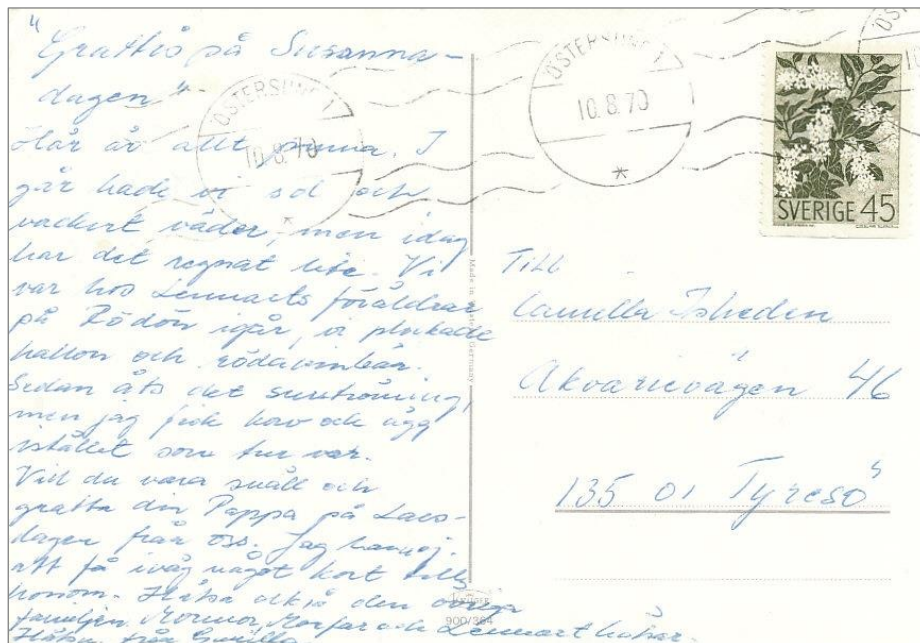 "Grattis på Susanna-
dagen"
Här är allt samma. I
går hade vi sol och
vackert väder, men idag
har det regnat lite. Vi
var hos Lennarts föräldrar
på Rödön igår, vi plockade
hallon och rödavinbär.
Sedan åts det surströming,
men jag fick korv och ägg
istället som tur var.
Vill du vara snäll och
gratta din Pappa på Lars-
dagen från oss. Jag
att få iväg något kort till
honom. Hälsa också den övriga
familjen. Mormor, Morfar och Lennart hälsar.
Hälsn. från Gunilla
ÖSTERSUND 1
10.8.70
ÖSTERSUND 1
10.8.70
SVERIGE 45
Till
Camilla Isheden
Akvarievägen 46
135 01 Tyresö
Made in Western Germany
KRÜGER
900/364